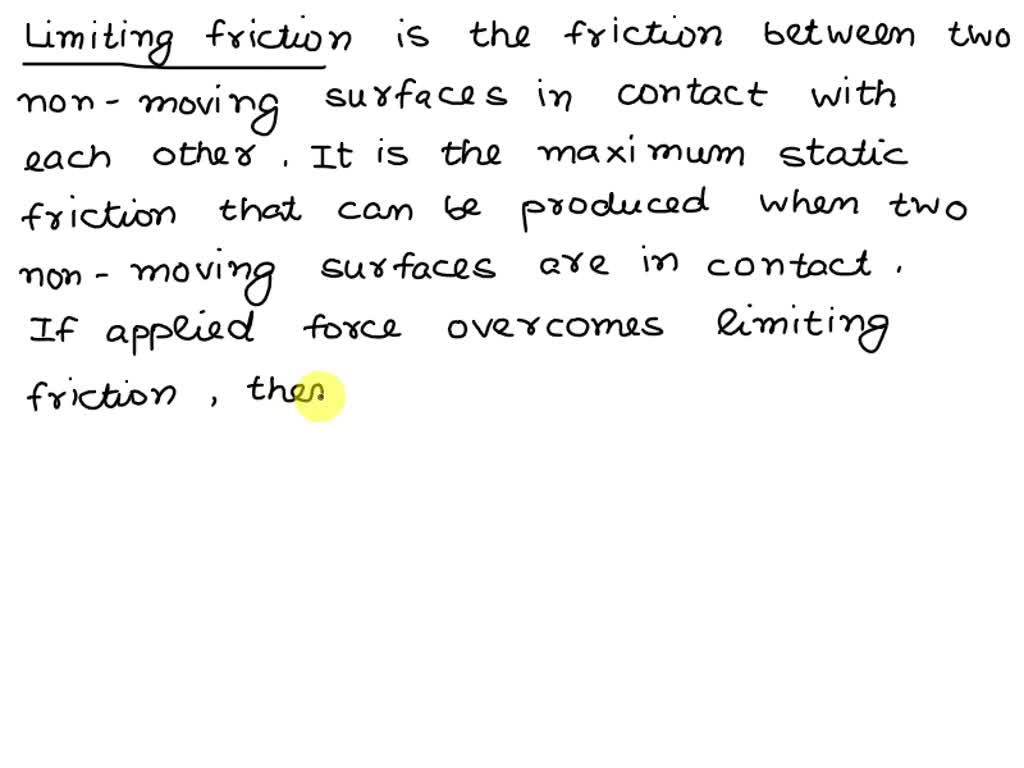 Limiting friction is the friction between two
non-moving surfaces in contact with
each other. It is the maximum static
friction that can be produced when two
non-moving surfaces are in contact.
If applied force overcomes limiting
friction, then